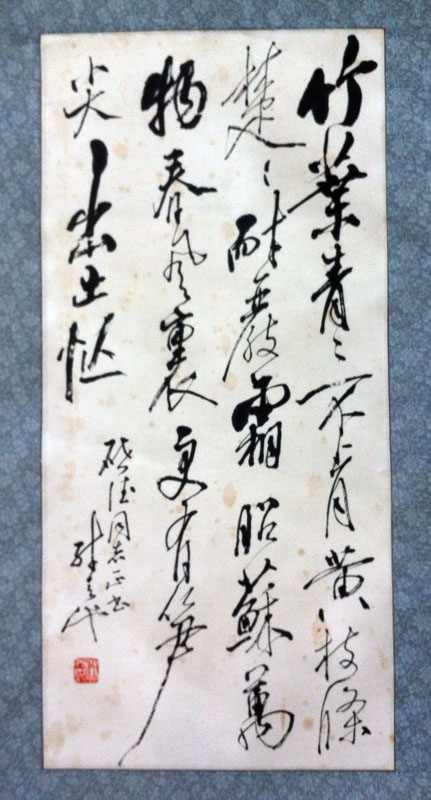 竹葉青〻不肯黃枝條
楚〻耐嚴霜昭蘇萬
物春風裏更有筍
尖出土忙
同志正書